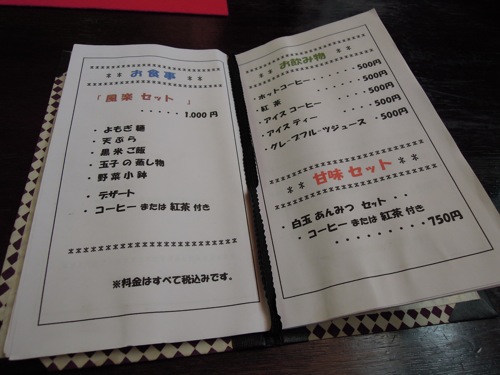 ** お食事 **
「風楽 セット 」
・・・・・1.000 円
・よもぎ麺
・天ぷら
・黒米ご飯
・玉子の蒸し物
・野菜小鉢
・デザート
・コーヒーまたは紅茶付き
※料金はすべて税込みです。
** お飲み物 **
・ホットコーヒー・・・・・500円
・紅茶・・・・・500円
・アイスコーヒー・・・・・500円
・アイスティー・・・・・500円
・グレープフルーツジュース・500円
** 甘味セット **
・白玉あんみつ セット・・
・コーヒーまたは紅茶付き
・・・・・・・・・750円